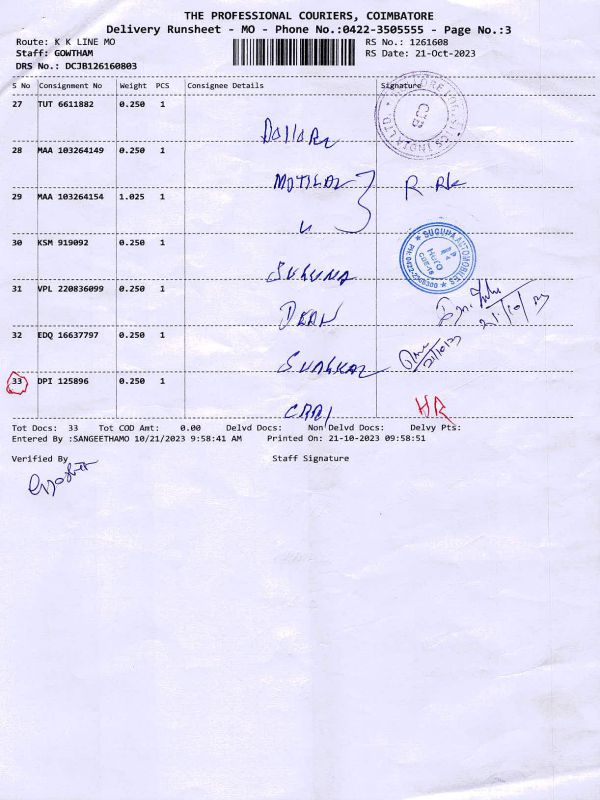 THE PROFESSIONAL COURIERS, COIMBATORE
Delivery Runsheet - MO - Phone No.:0422-3505555 - Page No.:3
Route: K K LINE MO
RS No.: 1261608
Staff: GOWTHAM
RS Date: 21-Oct-2023
DRS No.: DCJB126160803
S No Consignment No Weight PCS Consignee Details Signature
27 TUT 6611882 0.250 1
Dollar
28 MAA 103264149 0.250 1
MOTILAL
29 MAA 103264154 1.025 1
30 KSM 919092 0.250 1
SUGUNA
SUGUNA AUTOMOBILES
31 VPL 220836099 0.250 1
DEAN
21/10/23
32 EDQ 16637797 0.250 1
21/10/23
33 DPI 125896 0.250 1
HR
Tot Docs: 33 Tot COD Amt: 0.00 Delvd Docs: Non Delvd Docs: Delvy Pts:
Entered By :SANGEETHAMO 10/21/2023 9:58:41 AM Printed On: 21-10-2023 09:58:51
Verified By Staff Signature